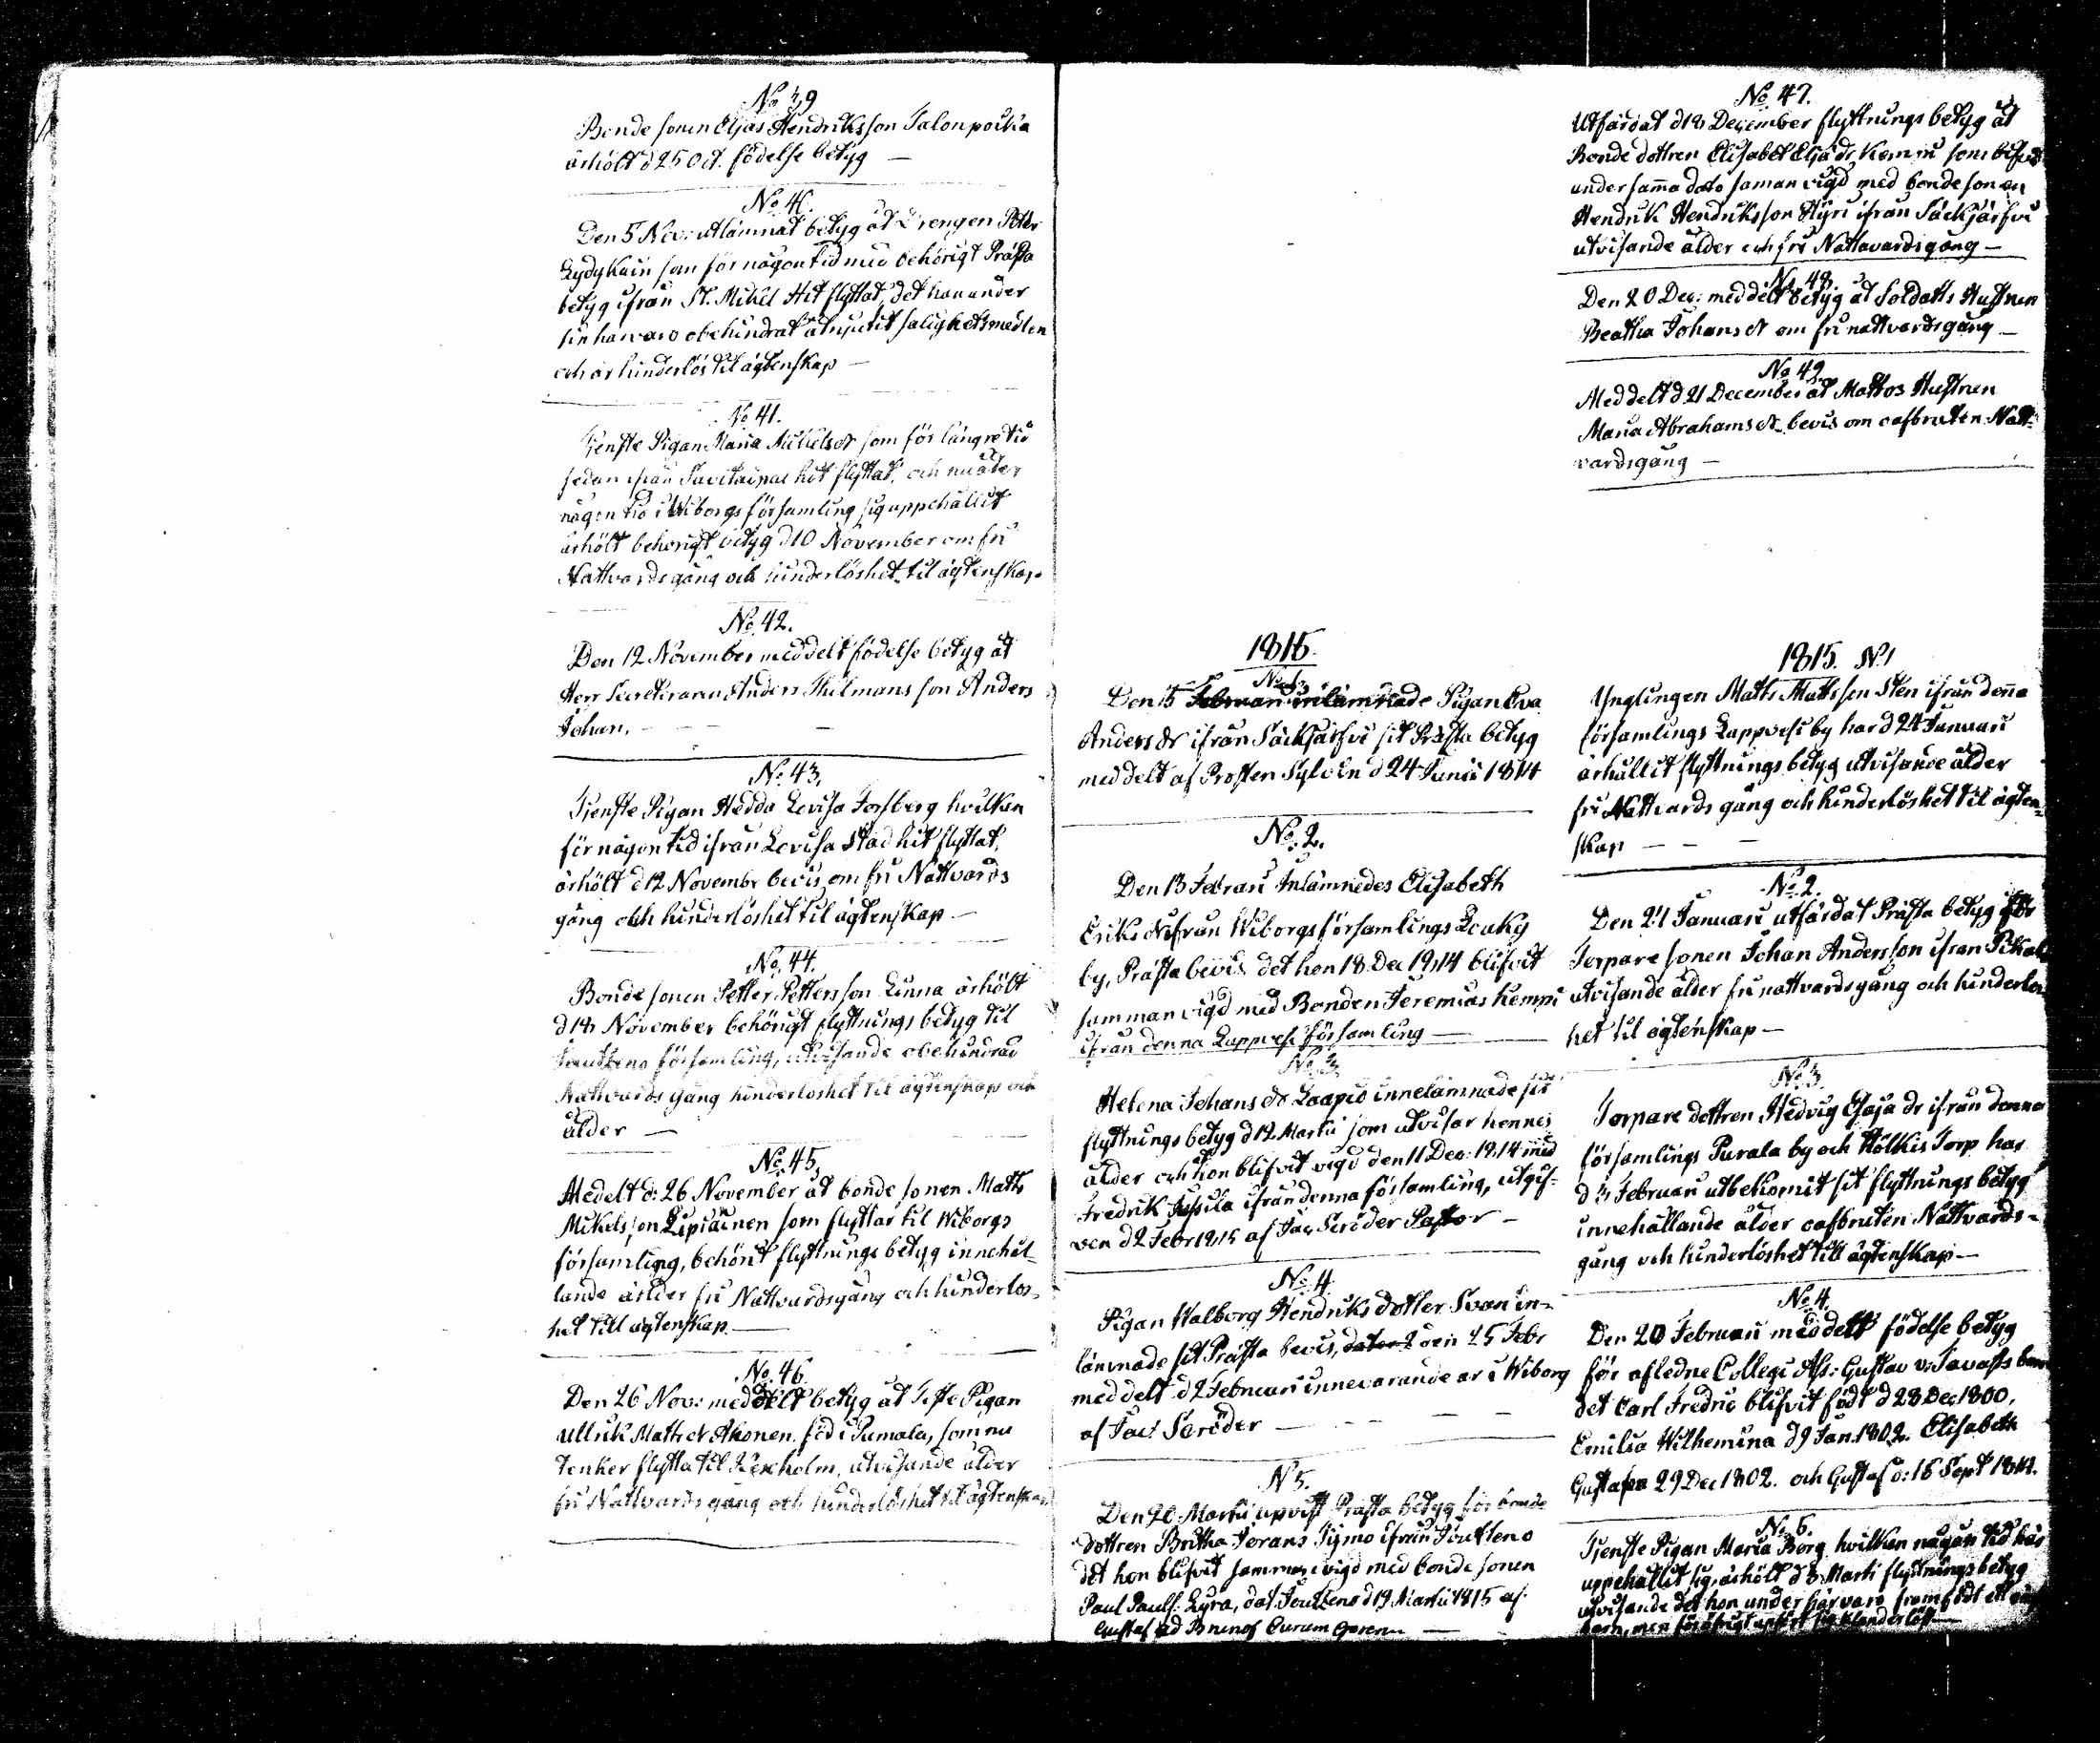 No 39
Bonde sonen Eljas Hendriksson Talonpoika
ärhölt d 25 Oct. födelse betyg —
No 40.
Den 5 Nov: utlämnat betyg åt Drengen Petter
Lydykain som för någon tid med behörigt Prästa
betyg ifrån St. Mikel Hit flyttat, det han under
sin harvaro obehindrat åtnjutit salighetsmedlen
och är hinderlös til ägtenskap —
No 41.
Tjenste Pigan Maria Mickelsdr som för längre tid
sedan ifrån Savitaipal hit flyttat, och nu åter
någon tid i Wiborgs församling sig uppehållit
ärhölt behörigt betyg d 10 November om fri
Nattvardsgång och hinderlöshet til ägtenskap
No 42.
Den 12 November meddelt födelse betyg åt
Herr Secreteraren Anders Thilmans son Anders
Johan. — — —
No 43.
Tjenste Pigan Hedda Lovisa Forsberg hvilken
för någon tid ifrån Lovisa Stad hit flyttat,
ärhölt d 12 Novembr bevis om fri Nattvards
gång och hinderlöshet til ägtenskap —
No 44.
Bonde sonen Petter Pettersson Linna ärhölt
d 18 November behörigt flyttnings betyg til
Joutseno församling, utvisande obehindrad
Nattvards gång hinderlöshet til ägtenskap och
ålder —
No 45.
Medelt d: 26 November åt bonde sonen Matts
Mikelsson Lipiäinen som flyttar til Wiborgs
församling, behörit flyttnings betyg innehål-
lande ålder fri Nattvardsgång och hinderlös-
het till ägtenskap —
No 46.
Den 26 Nov: meddelt betyg åt Tjste Pigan
Ullrik Mattsdr Ahonen. föd i Pumala, som nu
tenker flytta til Kexholm, utvisande ålder
fri Nattvards gång och hinderlöshet til ägtenskap
1815.
No 1.
Den 15 Februari inlämnade Pigan Eva
Andersdr ifrån Säckjärfvi sit Prästa betyg
meddelt af Prosten Sylvén d 24 Junii 1814
No. 2.
Den 13 Februari Inlämnedes Elisabeth
Eriksdr ifrån Wiborgs församlings Louky
by, Prästa bevis det hon 18 Dec 1814 blifvit
samman vigd med Bonden Jeremias Kempi
ifrån denna Lappvesi församling —
No 3.
Helena Johansdr Laapio innelämnade sit
flyttnings betyg d 12 Martii som utvisar hennes
ålder och att hon blifvit vigd den 11 Dec: 1814 med
Fredrik Jussila ifrån denna församling, utgif-
ven d 2 Febr 1815 af Jac Seröder Pastor —
No 4.
Pigan Walborg Hendriks dotter Svan in-
lämnade sit Prästa bevis, den 25 Febr
meddelt d 2 Februari innevarande år i Wiborg
af Jac: Seröder — — — —
N 5.
Den 20 Martii upvist Prästa betyg för bonde
dottren Britha Jörans Tijmo ifrån Joutseno
det hon blifvit sammanvigd med bonde sonen
Paul Pauls: Lyra, dat Joutseno d 19 Martii 1815 af
Gustaf Ad Brunof Curam Gerens —
No. 47.
Utfärdat d 18 December flyttnings betyg åt
Bonde dottren Elisabet Elja dr Kemppi som blifvit
under sama dato saman vigd med bonde sonen
Hendrik Hendriksson Hyri ifrån Säckjärfvi
utvisande ålder och fri Nattavardsgång —
No. 48.
Den 20 Dec: meddelt betyg åt Soldatts Hustrun
Beatha Johansdr om fri nattvardsgång —
No 49.
Meddelt d 21 December åt Mattos Hustrun
Maria Abrahamsdr bevis om oafbruten Natt-
vardsgång —
1815. N.1
Ynglingen Matts Mattsson Sten ifrån dena
församlings Lappvesi by har d 24 Januari
ärhållit flyttnings betyg utvisande ålder
fri Nattvards gång och hinderlöshet til ägten-
skap — — —
No. 2.
Den 21 Januari utfärdat Prästa betyg för
Torpare sonen Johan Andersson ifrån
utvisande ålder fri nattvardsgång och hinderlös
het til ägtenskap —
No 3.
Torpare dottren Hedvig Esaja dr ifrån denna
församlings Purala by och Hölkis Torp har
d 3 Februari utbekomit sit flyttnings betyg
innehållande ålder oafbruten Nattvards-
gång och hinderlöshet till ägtenskap —
No 4.
Den 20 Februari meddelt födelse betyg
för afledne Collegi Ass: Gustav v: Tavasts barn
det Carl Fredric blifvit född d 28 Dec 1800,
Emilia Wilhemina d 9 Jan. 1802. Elisabeth
Gustafva 29 Dec 1802. och Gustaf d: 16 Sept 1804.
No. 5.
Tjenste Pigan Maria Borg hvilken någon tid här
uppehallit sig, ärhölt d 3 Marti flyttningsbetyg
utvisande det hon under härvaro framfödt ett
barn, men för öfrigt upfört sig klanderlöst —